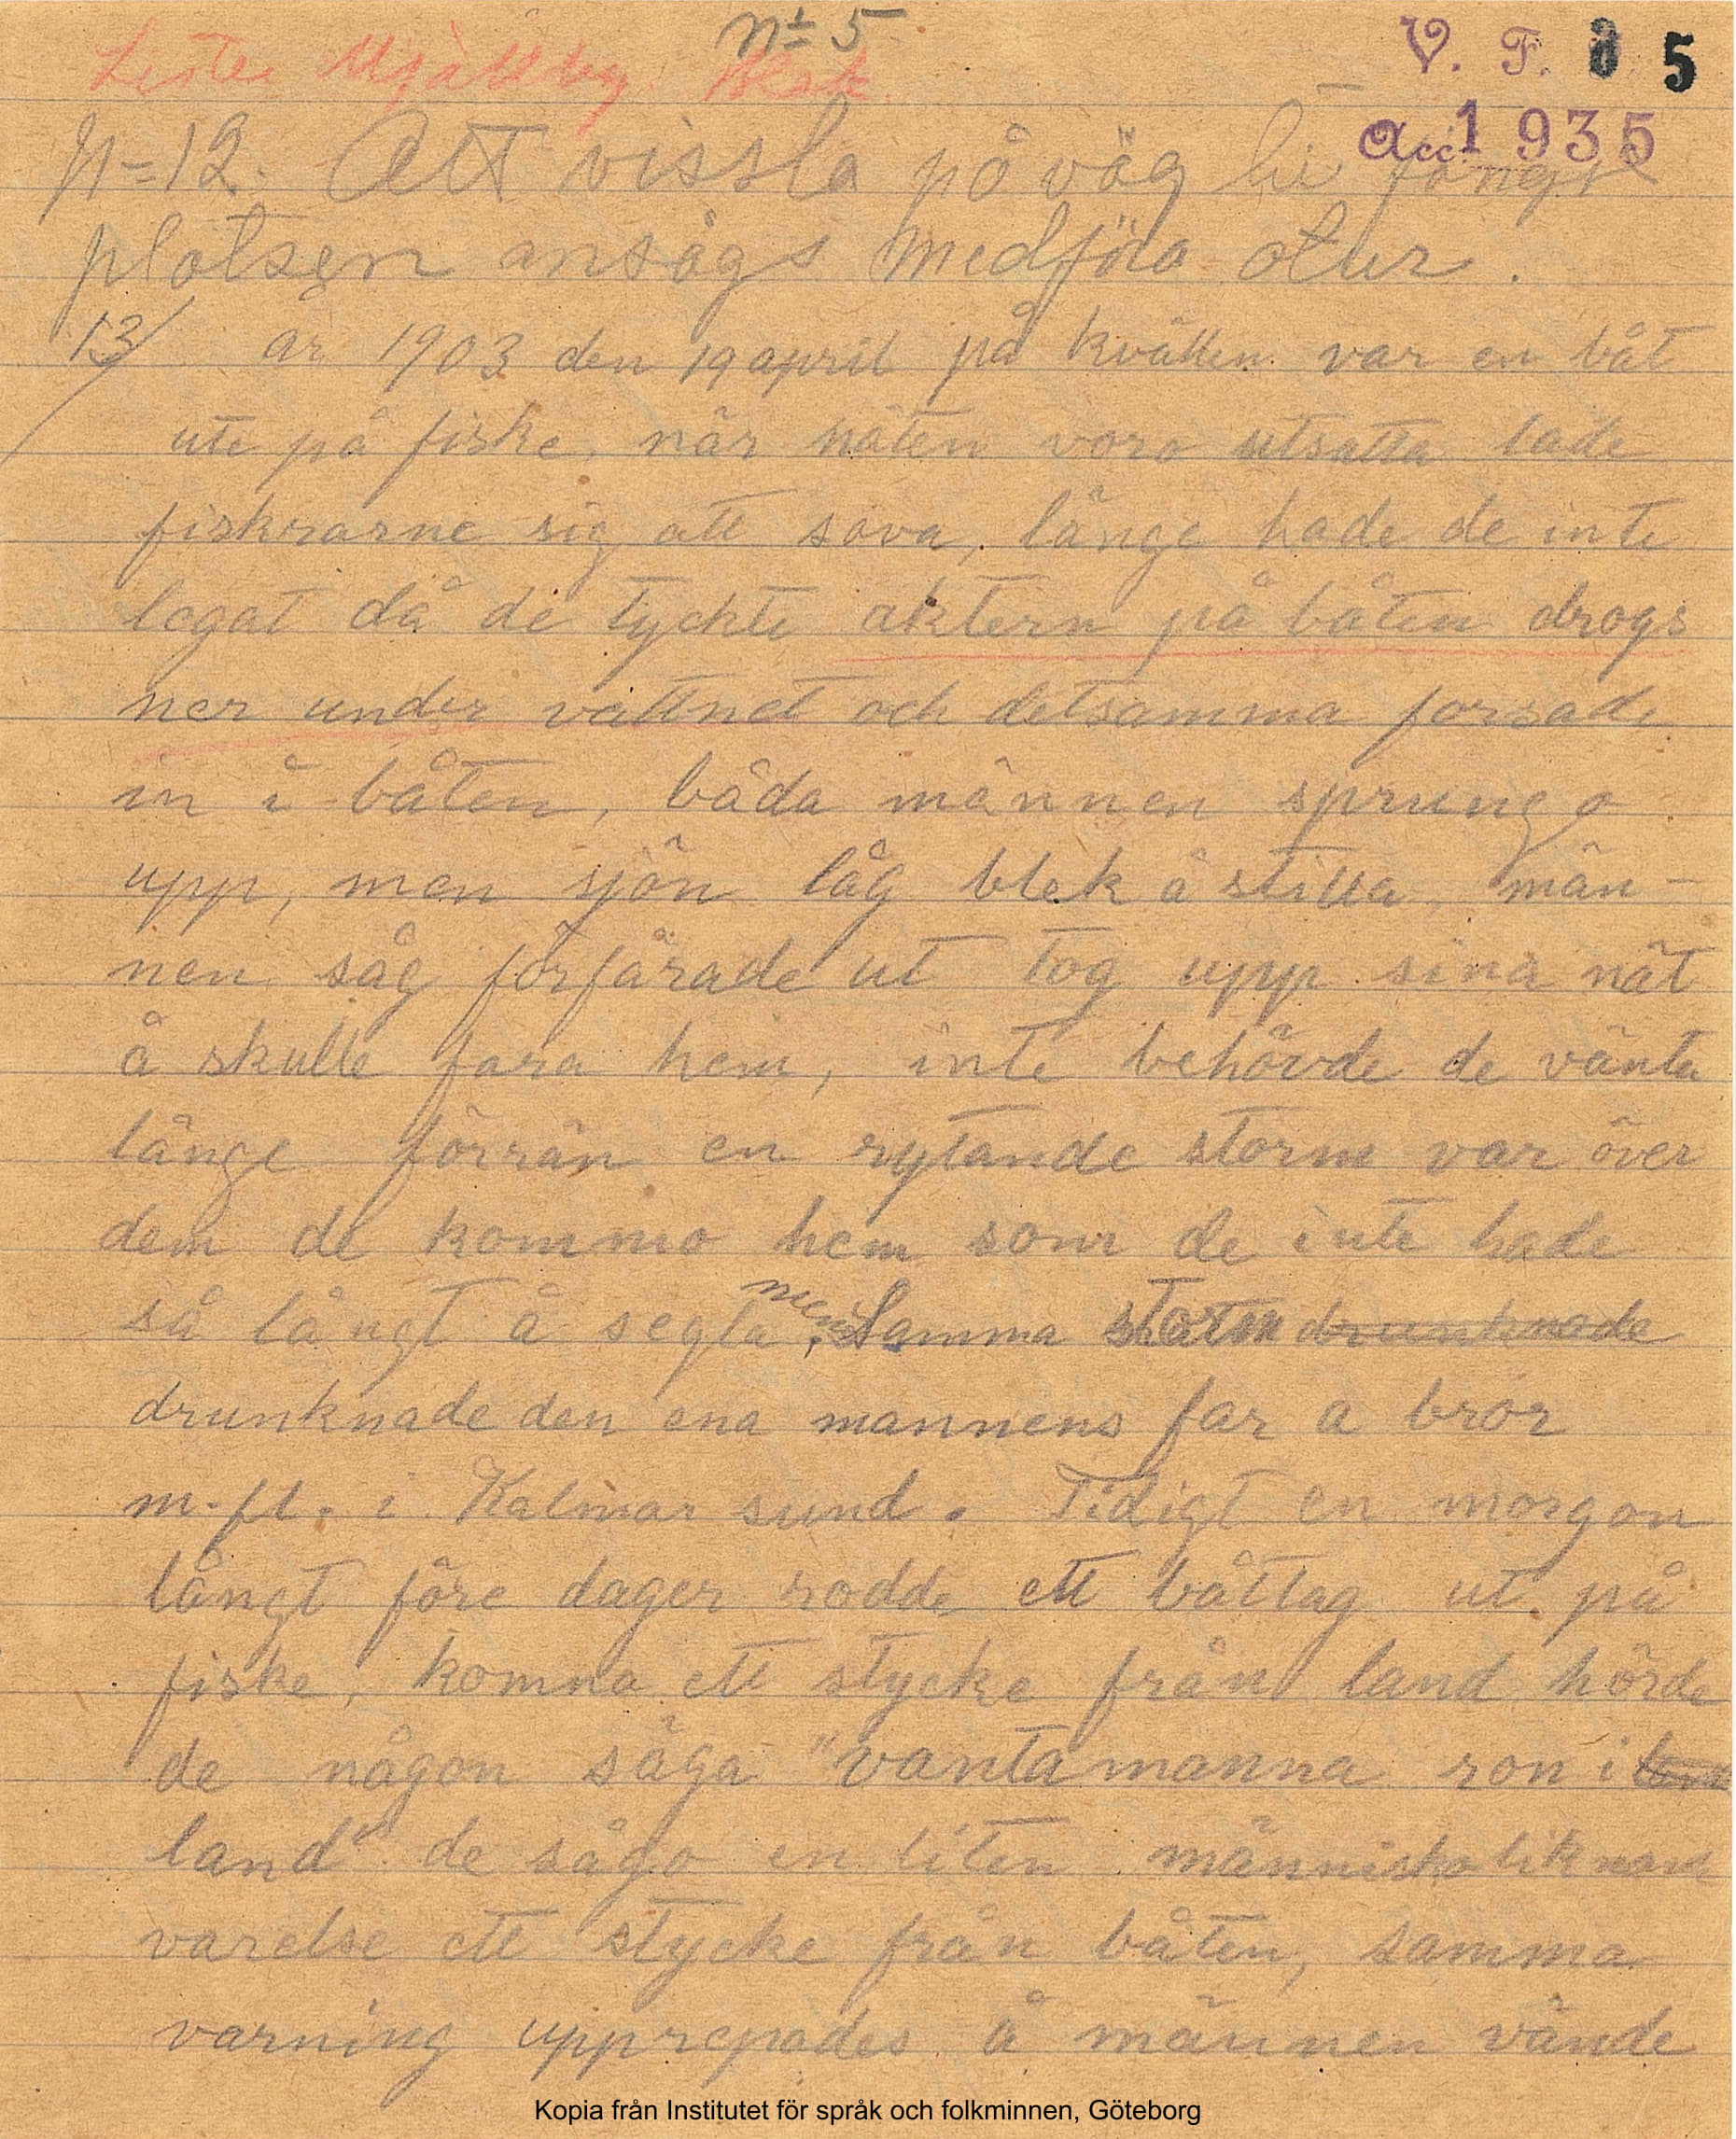 No 5
V. F. 8 5
Lister Mjällby Blek.
Acc. 1935
N=12. Att vissla på väg till fångst
platsen ansågs medföra otur.
13/ år 1903 den 19 april på kvällen var en båt
ute på fiske, när näten voro utsatta lade
fiskrarne sig att sova, länge hade de inte
legat då de tyckte aktern på båten drogs
ner under vattnet och detsamma forsade
in i båten, båda männen sprungo
upp, men sjön låg blek å stilla, män-
nen såg förfärade ut tog upp sina nät
å skulle fara hem, inte behövde de vänta
länge förrän en rytande storm var över
dem de kommo hem som de inte hade
så långt å segla, men samma storm drunknade
drunknade den ena mannens far a bror
m.fl. i Kalmar sund. Tidigt en morgon
långt före dager rodde ett båtlag ut på
fiske, komna ett stycke från land hörde
de någon säga "vantamanna ron i
land" de sågo en liten människoliknand
varelse ett stycke från båten, samma
varning upprepades å männen vände
Kopia från Institutet för språk och folkminnen, Göteborg